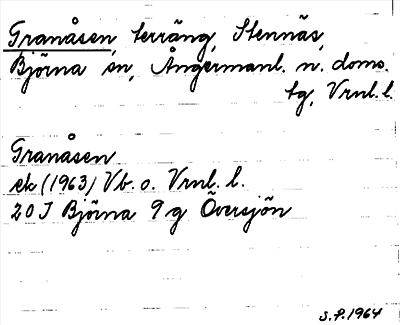 Granåsen, terräng, Stennäs,
Björna sn, Ångermanl. n. doms.
tg, Vrnl. l.
Granåsen
ek (1963) Vb. o. Vrnl. l.
20 J Björna 9 g Översjön
S.P. 1964